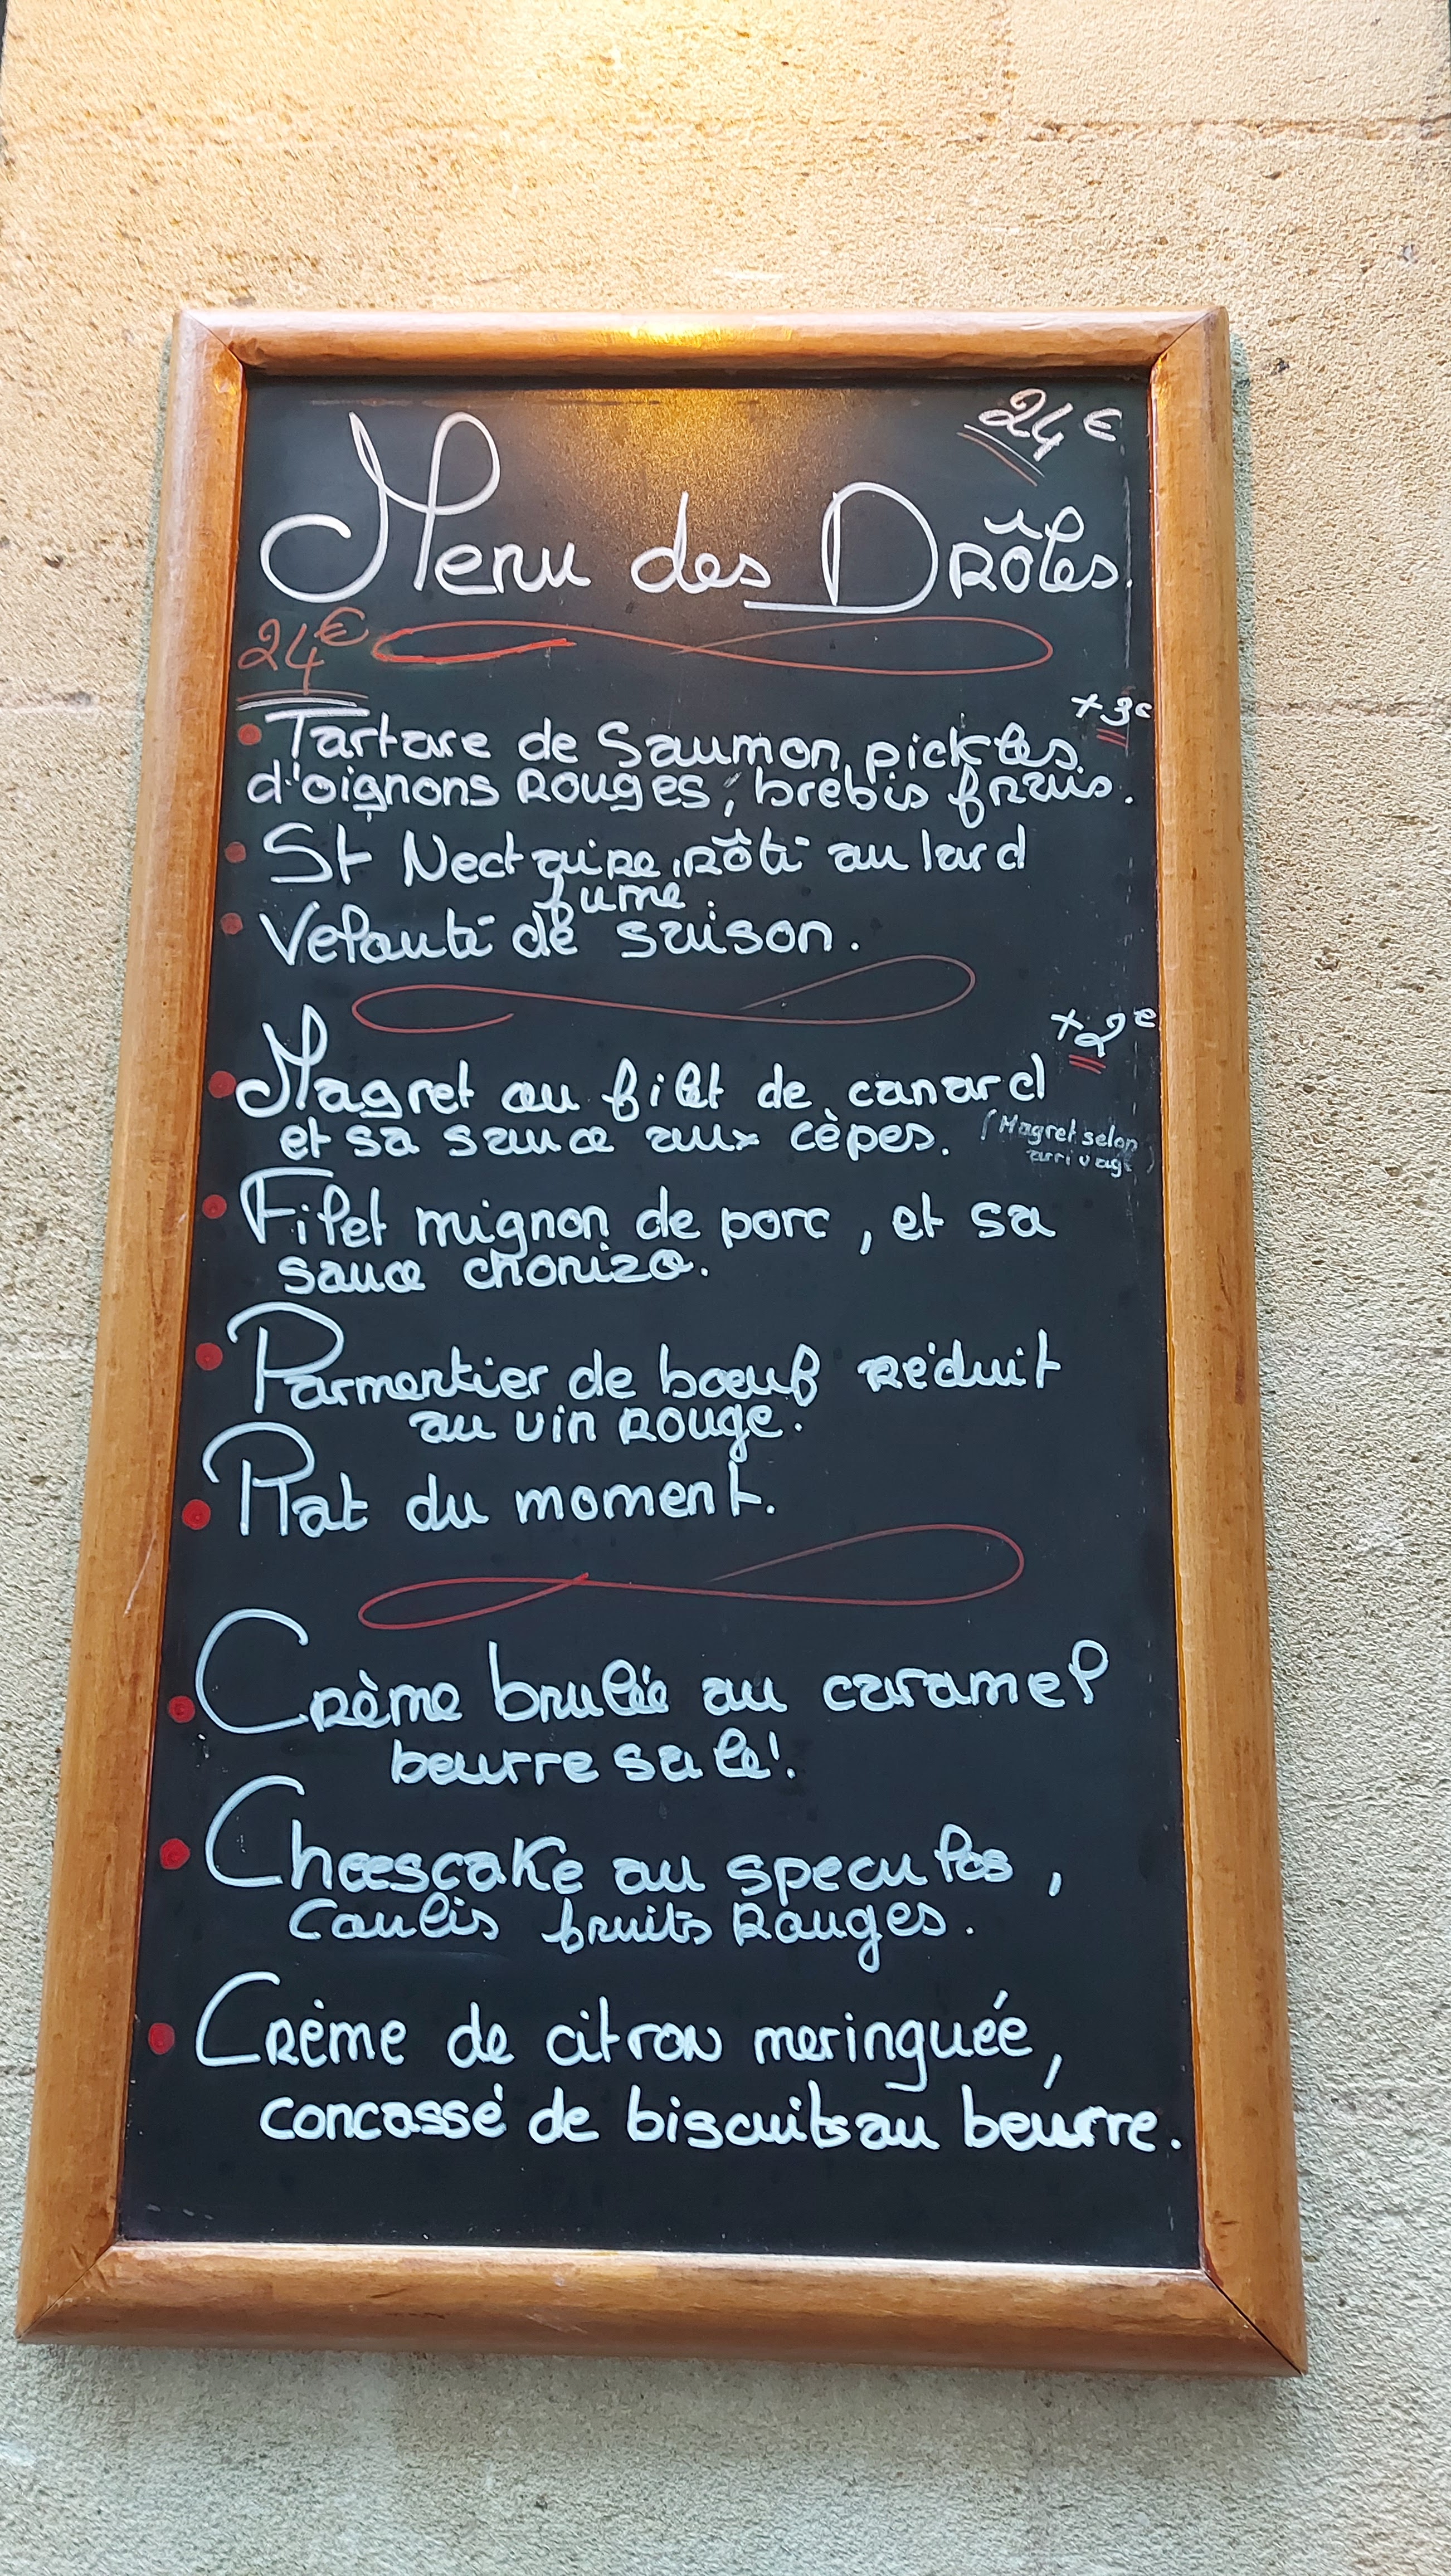 24€
Menu des Drôles.
24€
+3€
• Tartare de Saumon, pickles
d'oignons Rouges, brebis frais.
• St Nectaire rôti au lard
fumé.
• Velouté de saison.
+2€
• Magret ou filet de canard
et sa sauce aux cèpes. (Magret selon
arrivage)
• Filet mignon de porc, et sa
sauce chorizo.
• Parmentier de bœuf réduit
au vin rouge.
• Plat du moment.
• Crème brulée au caramel
beurre salé.
• Cheescake au speculos,
Coulis fruits Rouges.
• Crème de citron meringuée,
concassé de biscuits au beurre.